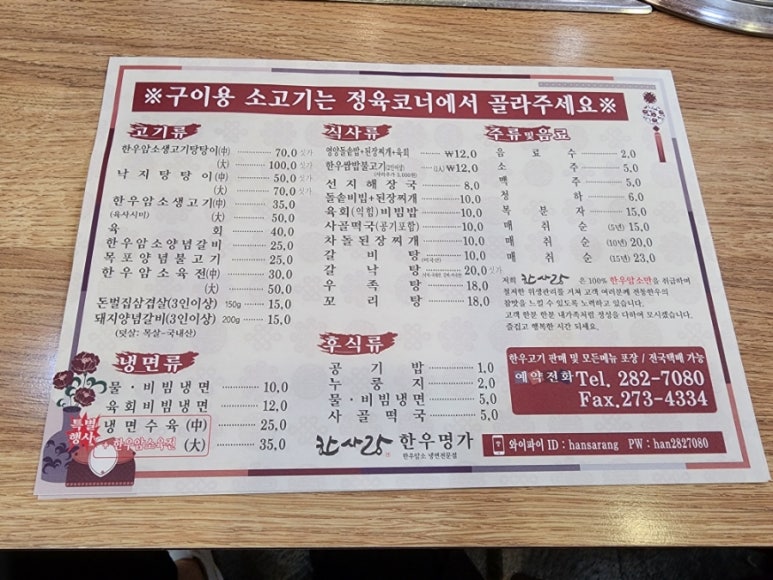 ※구이용 소고기는 정육코너에서 골라주세요※
고기류
한우암소생고기탕탕이(中) 70.0 싯가
(大) 100.0 싯가
낙지탕탕이(中) 50.0 싯가
(大) 70.0 싯가
한우암소생고기(中) 35.0
(육사시미) (大) 50.0
육회 40.0
한우암소양념갈비 25.0
목포양념불고기 25.0
한우암소육전(中) 30.0
(大) 50.0
돈벌집삼겹살(3인이상) 150g 15.0
돼지양념갈비(3인이상) 200g 15.0
(덧살: 목살-국내산)
냉면류
물·비빔냉면 10.0
육회비빔냉면 12.0
냉면수육(中) 25.0
+한우암소육전 (大) 35.0
특별행사
식사류
영양돌솥밥+된장찌개+육회 ₩12.0
한우쌈밥불고기 (1人) ₩12.0
선지해장국 8.0
돌솥비빔+된장찌개 10.0
육회(익힘)비빔밥 10.0
사골떡국(공기포함) 10.0
차돌된장찌개 10.0
갈비탕 10.0
갈낙탕 20.0 싯가
우족탕 18.0
꼬리탕 18.0
후식류
공기밥 1.0
누룽지 2.0
물·비빔냉면 5.0
사골떡국 5.0
한사랑 한우명가
한우암소 냉면전문점
주류및음료
음료수 2.0
소주 5.0
맥주 5.0
청하 6.0
복분자 15.0
매취순 (5년) 15.0
매취순 (10년) 20.0
매취순 (15년) 23.0
저희 한사랑 은 100% 한우암소만을 취급하며
철저한 위생관리를 거쳐 고객 여러분께 전통한우의
참맛을 느낄 수 있도록 노력하고 있습니다.
고객 한분 한분 내가족처럼 정성을 다하여 모시겠습니다.
즐겁고 행복한 시간 되세요.
한우고기 판매 및 모든메뉴 포장 / 전국택배 가능
예약전화 Tel. 282-7080
Fax. 273-4334
와이파이 ID : hansarang PW : han2827080